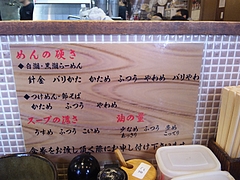 めんの硬さ
◆白湯・黒湯らーめん
針金 バリかた かため ふつう やわめ バリやわ
◆つけめん・郭そば
かため ふつう やわめ
スープの濃さ 油の量
うすめ ふつう こいめ 少なめ ふつう 多め
あっさり こってり
食券をお渡し頂く際にお申し付け下さいませ